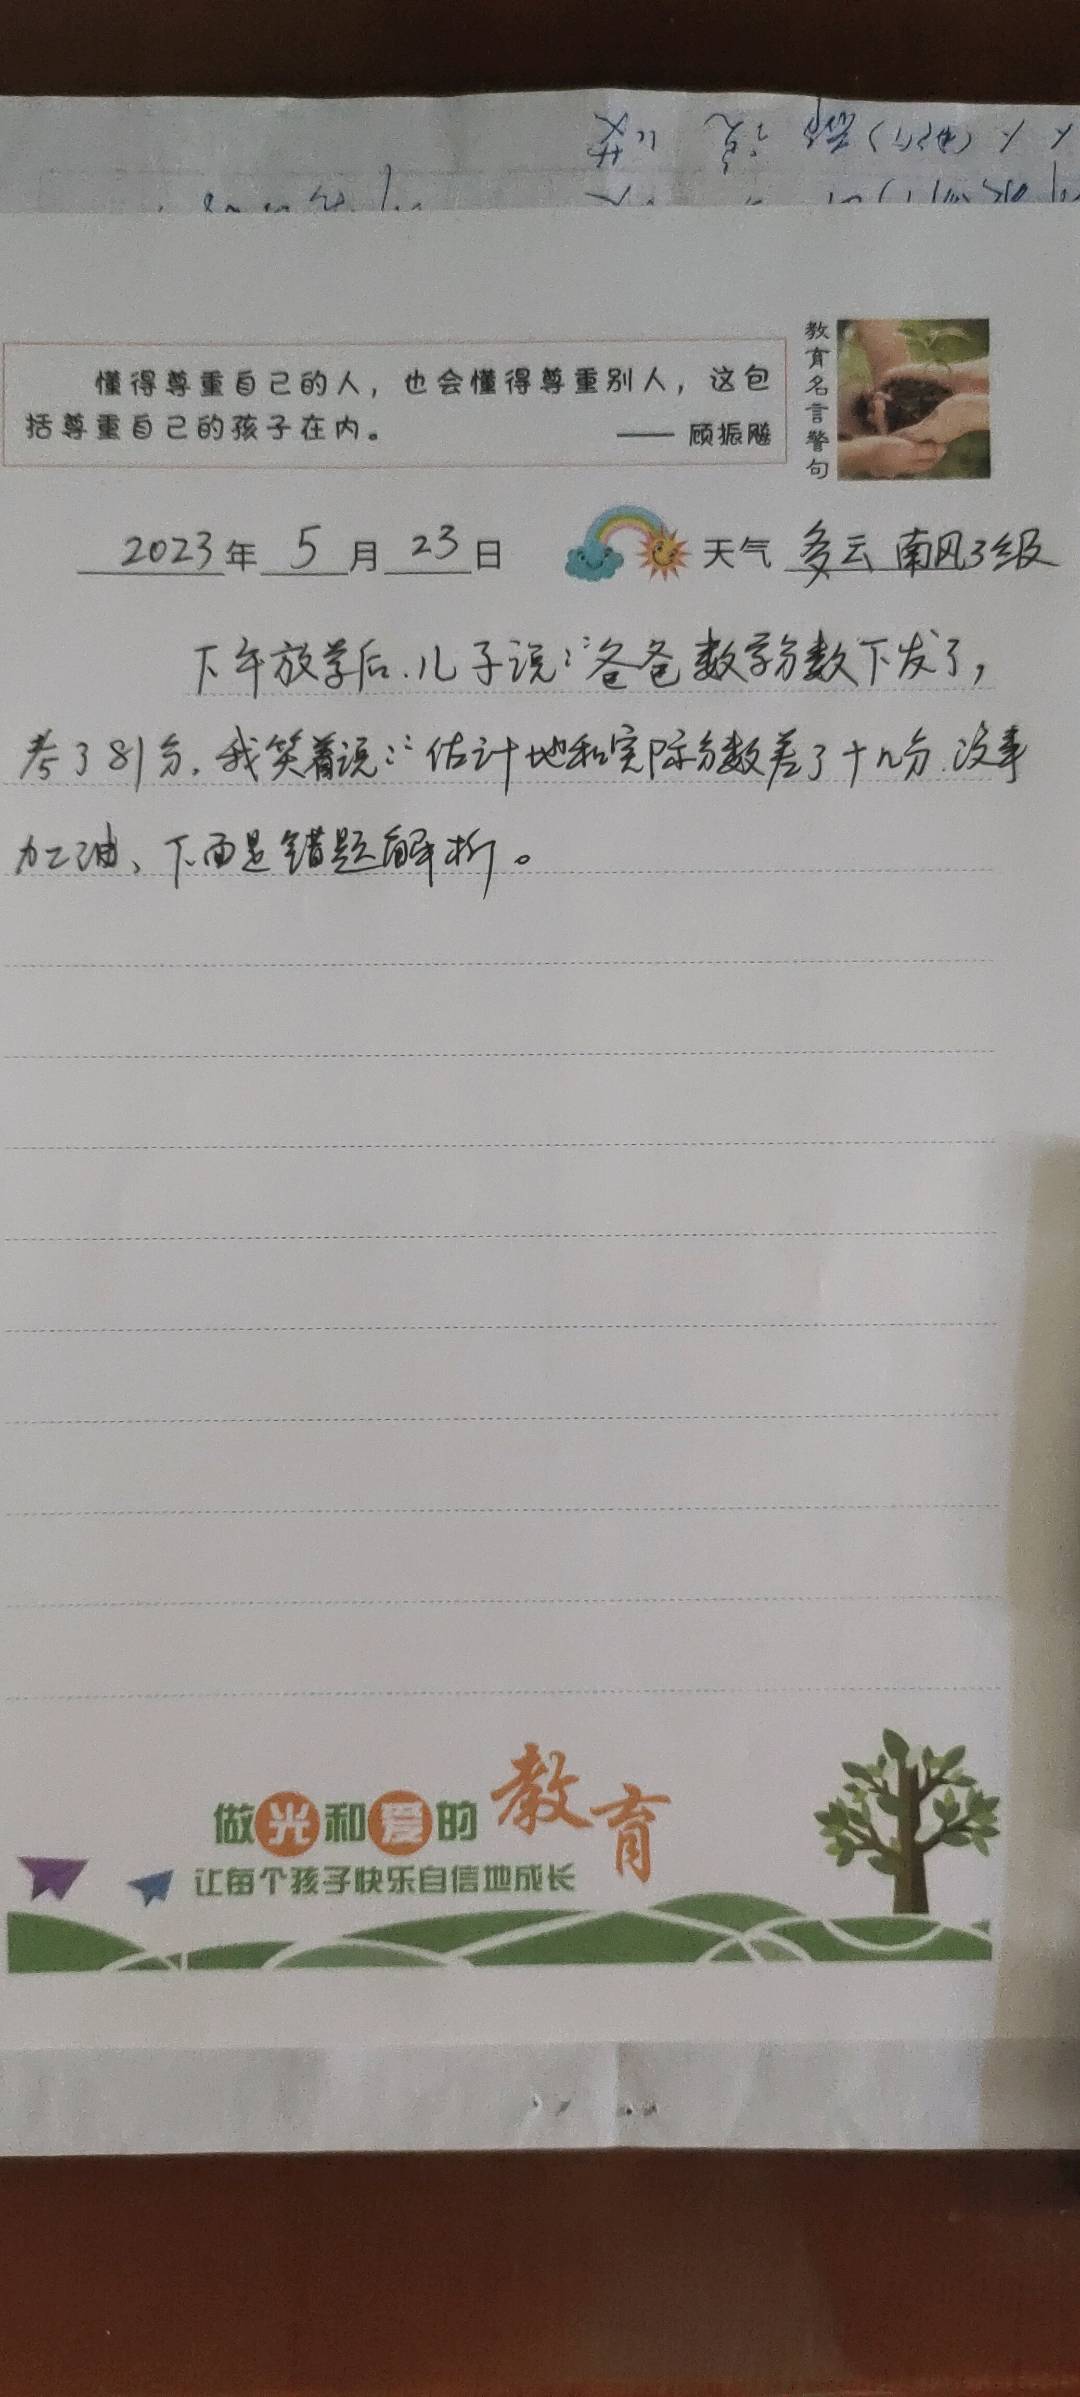 懂得尊重自己的人，也会懂得尊重别人，这包
括尊重自己的孩子在内。
—— 顾振飚
教育名言警句
2023年 5月 23日 天气 多云 南风3级
下午放学后.儿子说:“爸爸数学分数下发了,
考了81分.我笑着说:“估计地和实际分数差了十几分.没事
加油、下面是错题解析。
做光和爱的教育
让每个孩子快乐自信地成长